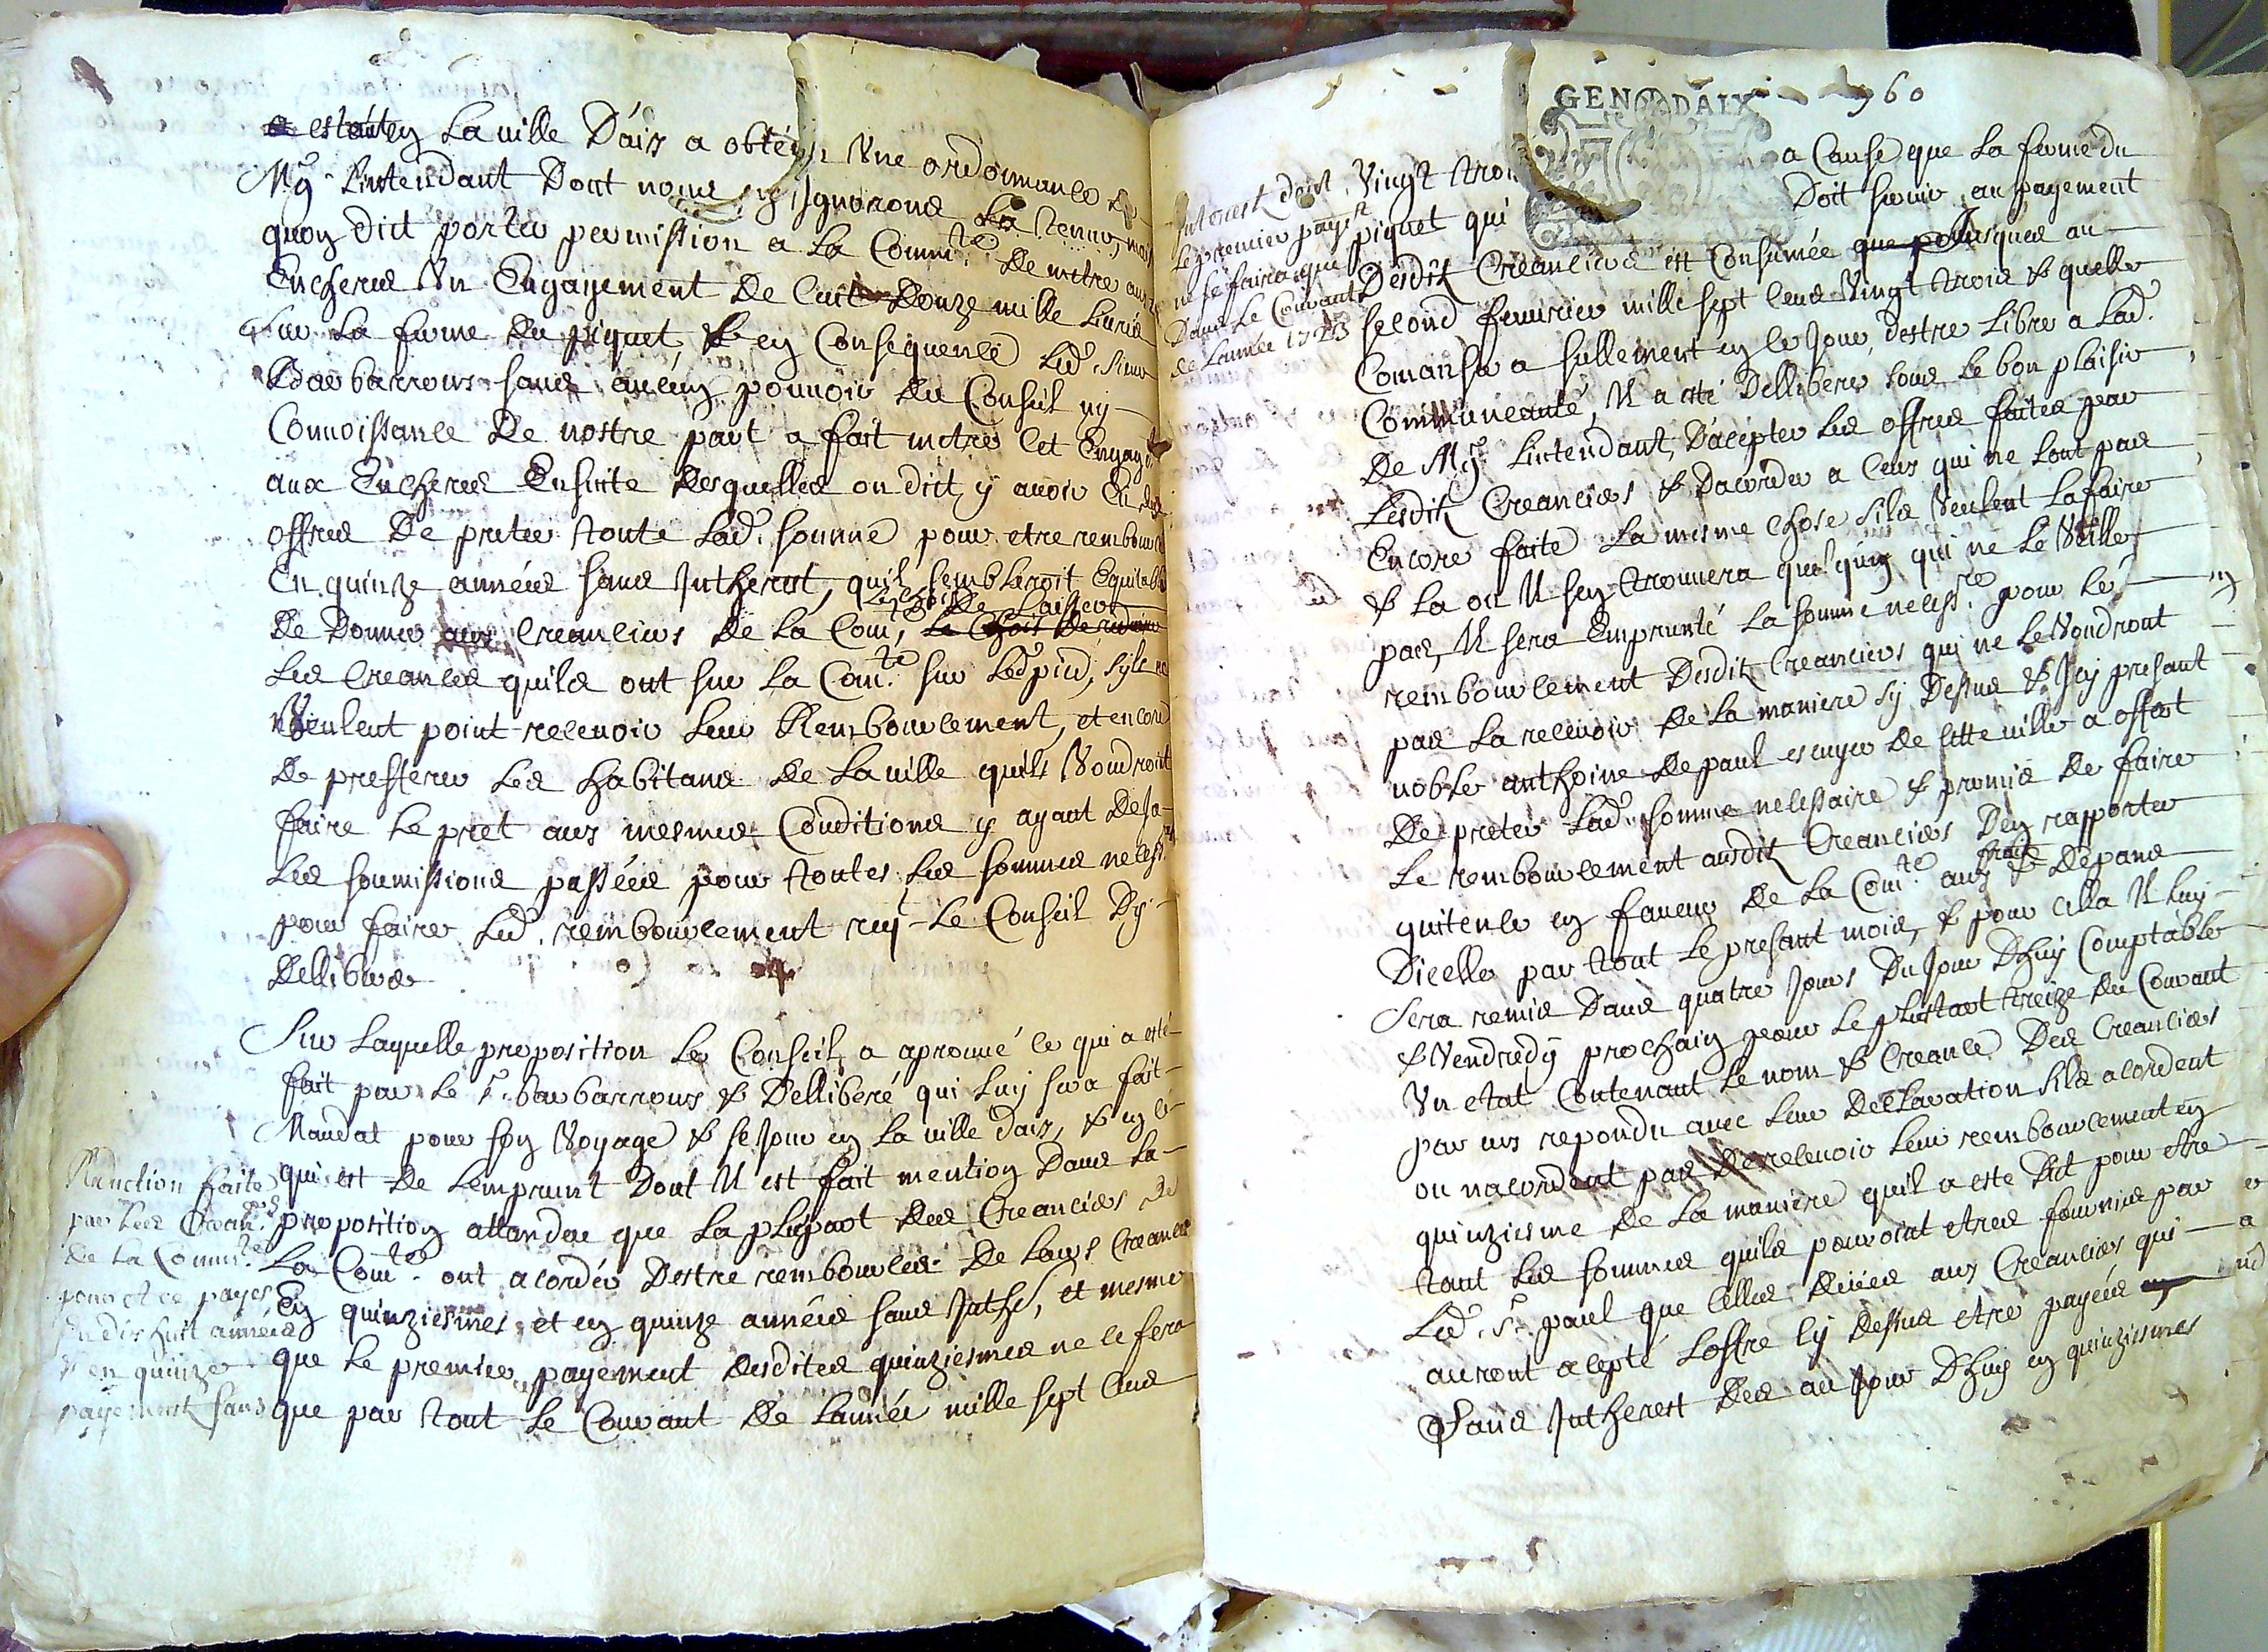 estant en La ville D'aix a obtenu Une ordonnance de
Mgr. Lintendant Dont nous en Ignorons La teneur, mais
quon dict porter permission a La Comm.té De metre aux
Encheres Un Engagement De Cent Douze mille Livres
Sur La ferme Du piquet, & en Consequence Led. Sieur
Barbarroux sans aucun pouvoir Du Conseil ny
Connoissance De nostre part a fait metre Cet Engagt.
aux Encheres Ensuite Desquelles on dict y avoir Eu des
offres De preter toute Lad. somme pour etre remboursé
En quinze années sans Intherest, quil sembleroit Equitable
De Donner aux Creanciers De La Com.té Le Choix De Laisser
Les Creances quils ont sur La Com.té sur Led. pied, sils ne
Veulent point recevoir Leur Remboursement, et encore
De prefferer Les habitans De La ville quils Voudroint
faire Le pret aux mesmes Conditions y ayant Desja
Les soumissions passées pour toutes Les sommes necess.res
pour faire Led. remboursement requ le Conseil Dy
Dellibere
Sur Laquelle proposition Le Conseil a aprouvé ce qui a esté
fait par Le Sr. barbarroux & Delliberé qui Luy sera fait
Mandat pour son Voyage & sejour en La ville daix, & en ce
qui est De Lemprunt Dont Il est fait mention Dans La
proposition attandu que La pluspart Des Creanciers de
La Com.té ont acordés Destre remboursés De Leurs Creances
En quinziesmes et en quinze années sans Inthé, et mesme
que Le premier payement desdites quinziesmes ne ce fera
que par tout Le Courant De Lannée mille sept Cens
Reduction faite
par Les Crean.ers
de La Comm.té
pour etre payés
en dix huit années
& en quinze
payement sans
960
GEN DAIX
Interest dont
Le premier payt.
ne se faira que
Dans Le Courant
de Lannée 1723
Vingt trois a Cause que La ferme du
piquet qui Doit servir au payement
Desdits Creanciers est Consumée Jusques au
second fevrier mille sept Cens Vingt trois & quelle
Comansera sullement en ce Jour, destre Libre a Lad.
Communeauté, Il a esté Delliberé sous Le bon plaisir
De Mgr. Lintendant, D'acepter Les offres faites par
Lesdits Creanciers & Dacorder a Ceux qui ne Lont pas
Encore faite La mesme Chose sils Veulent La faire
& La ou Il sen trouvera quelquun qui ne Le Veille
pas, Il sera Emprunté La somme necess.re pour Le
remboursement Desdits Creanciers qui ne Le Voudront
pas La recevoir De La maniere sy Dessus & Icy presant
noble anthoine De paul escuyer De cette ville a offert
De preter Lad. somme necessaire & promis De faire
Le remboursement ausdits Creanciers Den rapporter
quitence en faveur De La Com.té aux frais & Depans
Dicelle par tout Le presant mois, & pour cella Il Luy
sera remis Dans quatre Jours Du Jour Dhuy Comptable
& Vendredy prochain pour Le plustart treize Du Courant
Un etat Contenant Le nom & Creance Des Creanciers
par eux repondu avec Leur Declaration sils acordent
ou nacordent pas De recevoir Leur remboursement en
quinziesme De La maniere quil a esté Dict pour etre
tout Les sommes quils pouroint etres fournies par
Led. Sr. paul que Celles Deües aux Creanciers qui
auront acepté Loffre cy Dessus etre payées
sans Intherest Des au Jour Dhuy en quinziesmes